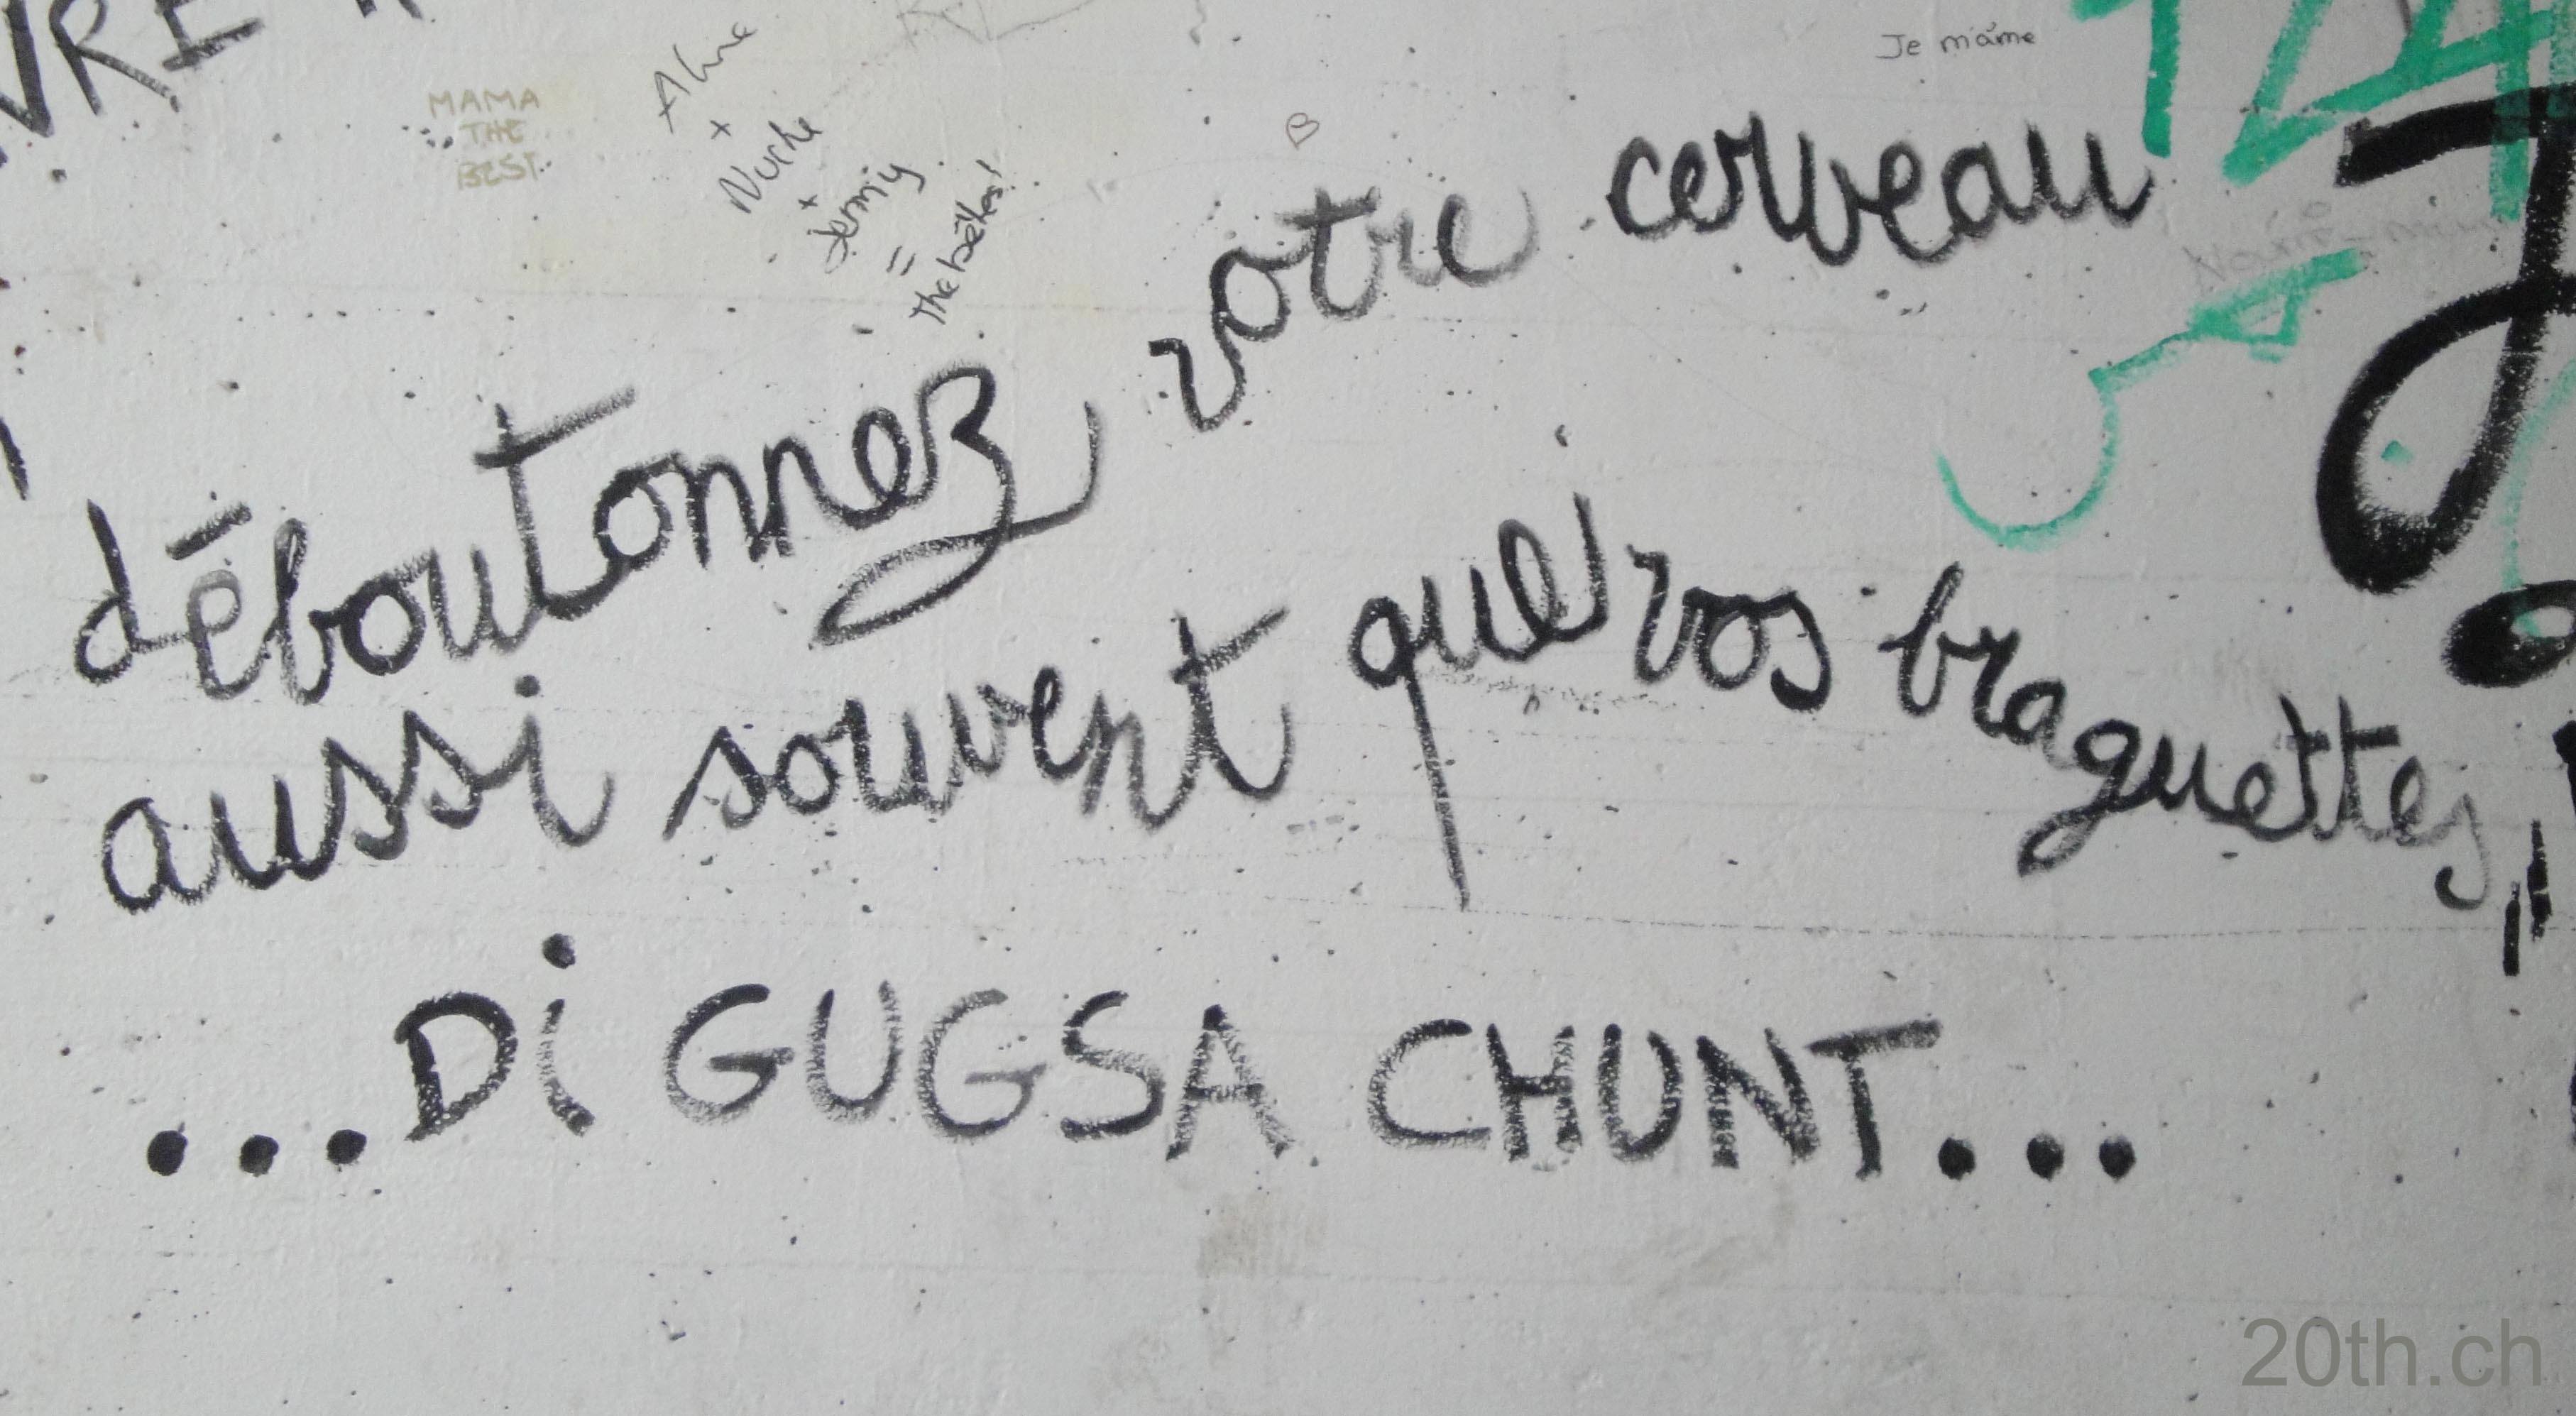 VRE
MAMA
THE
BEST
+
+
=
The bêtes!
Je máme
déboutonnez votre cerveau
aussi souvent que vos braguettes
...Di GUGSA CHUNT...
20th.ch